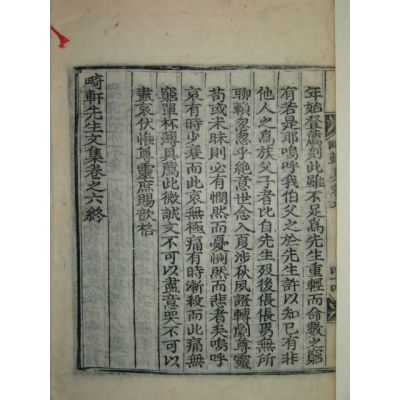 年始登薦剡此雖不足爲先生重輕而命數之窮
有若是耶嗚呼我伯父之於先生許以知己有非
他人之爲族父子者比自先生歿後倀倀焉無所
聊賴忽忽乎絶意世念入夏涉秋風證轉劇尊靈
苟或未昧則必有憫然而憂憫然而悲者矣嗚呼
哀有時少衰而此哀無極痛有時漸殺而此痛無
窮單杯薄具薦此微誠文不可以盡意哭不可以
盡哀伏惟尊靈庶賜歆格
畸軒先生文集卷之六終